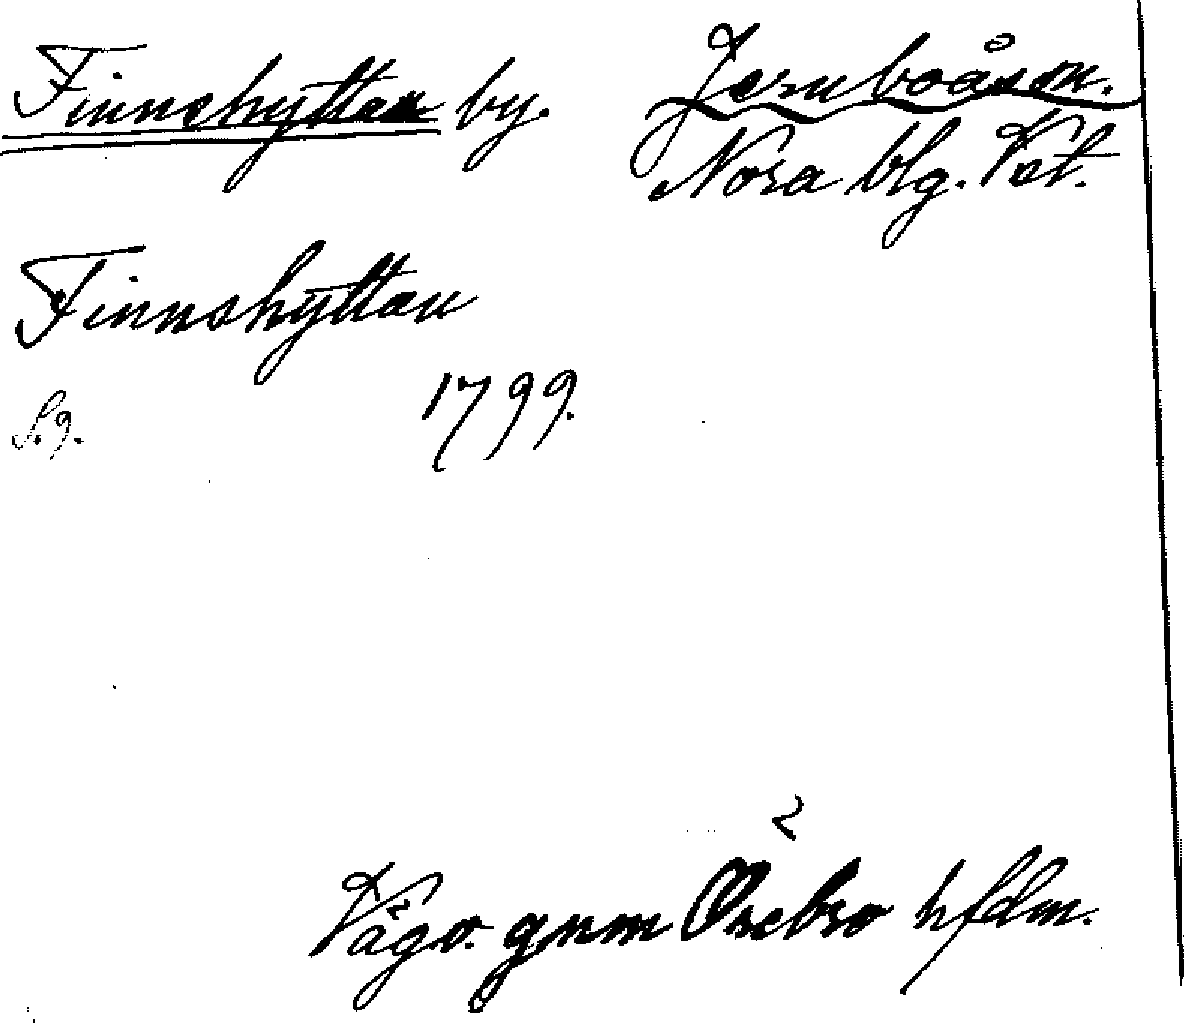 Finnshyttan by. Jernboåsm.
Nora blg. Vet.
Finnshyttan
S.9. 1799.
Vägv. gnm Örebro hfdm.